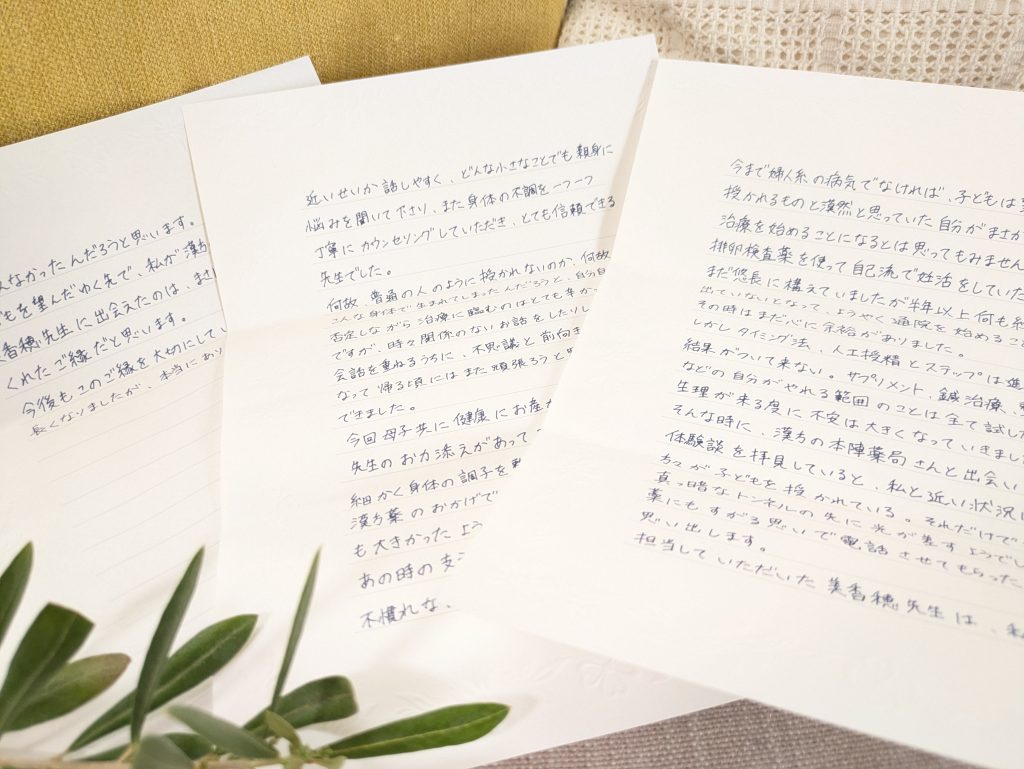 今まで婦人系の病気でなければ、子どもは
授かれるものと漠然と思っていた自分がまさか
治療を始めることになるとは思ってもみません
排卵検査薬を使って自己流で妊活をしていた
まだ悠長に構えていましたが半年以上何も
出ていないとなって、ようやく通院を始めるこ
その時はまだ心に余裕がありました。
しかしタイミング法、人工授精とステップは進
結果がついて来ない。サプリメント、鍼治療、
などの自分がやれる範囲のことは全て試し
生理が来る度に不安は大きくなっていきまし
そんな時に、漢方の本陣薬局さんと出会い
体験談を拝見していると、私と近い状況
方々が子どもを授かれている。それだけで
真っ暗なトンネルの先に光が差すようで
薬にもすがる思いで電話させてもらった
思い出します。
担当していただいた美香穂先生は、私
近いせいか話しやすく、どんな小さなことでも親身に
悩みを聞いて下さり、また身体の不調を一つ一つ
丁寧にカウンセリングしていただき、とても信頼できる
先生でした。
何故、普通の人のように授かれないのか、何故
こんな身体で生まれてしまったんだろうと、自分自
否定しながら治療に臨むのはとても辛か
ですが、時々関係のないお話をしたりし
会話を重ねるうちに、不思議と前向き
なって帰る頃にはまた頑張ろうと思
できました。
今回母子共に健康にお産が
先生のお力添えがあって
細かく身体の調子を
漢方薬のおかげで
も大きかったよう
あの時の支
不慣れな、
んなかったんだろうと思います。
もを望んだゆく先で、私が漢方
香穂先生に出会えたのは、まさ
くれたご縁だと思います。
今後もこのご縁を大切にして
長くなりましたが、本当にあり